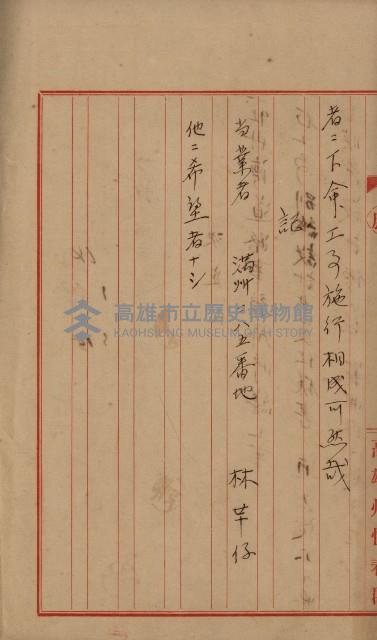 者ニ下命工事施行相成可然哉
記
当業者 満州六八五番地 林芊仔
他ニ希望者ナシ
高雄市立歷史博物館
KAOHSIUNG MUSEUM OF HISTORY
高雄州恆春郡